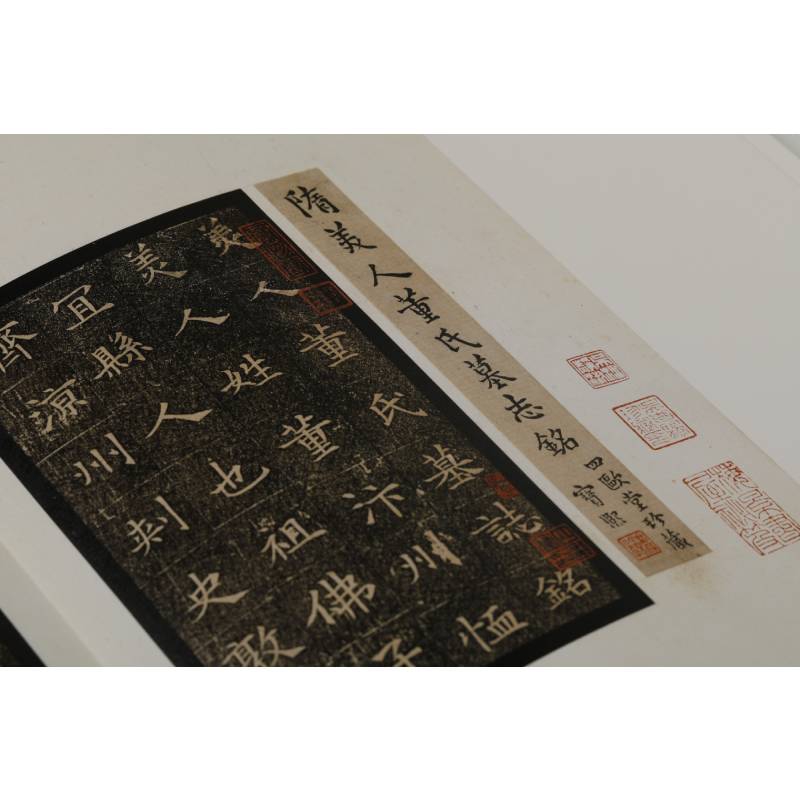 隋美人董氏墓志銘
四歐堂珍藏
寶熙
美人董氏墓誌銘
美人姓董汴州恤
冝縣人也祖佛子
齊涼州刾史敦